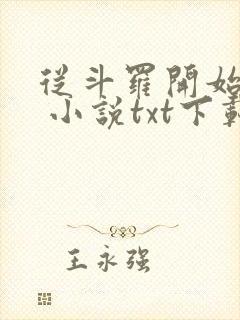 從斗羅開始
小説txt下載
王永强